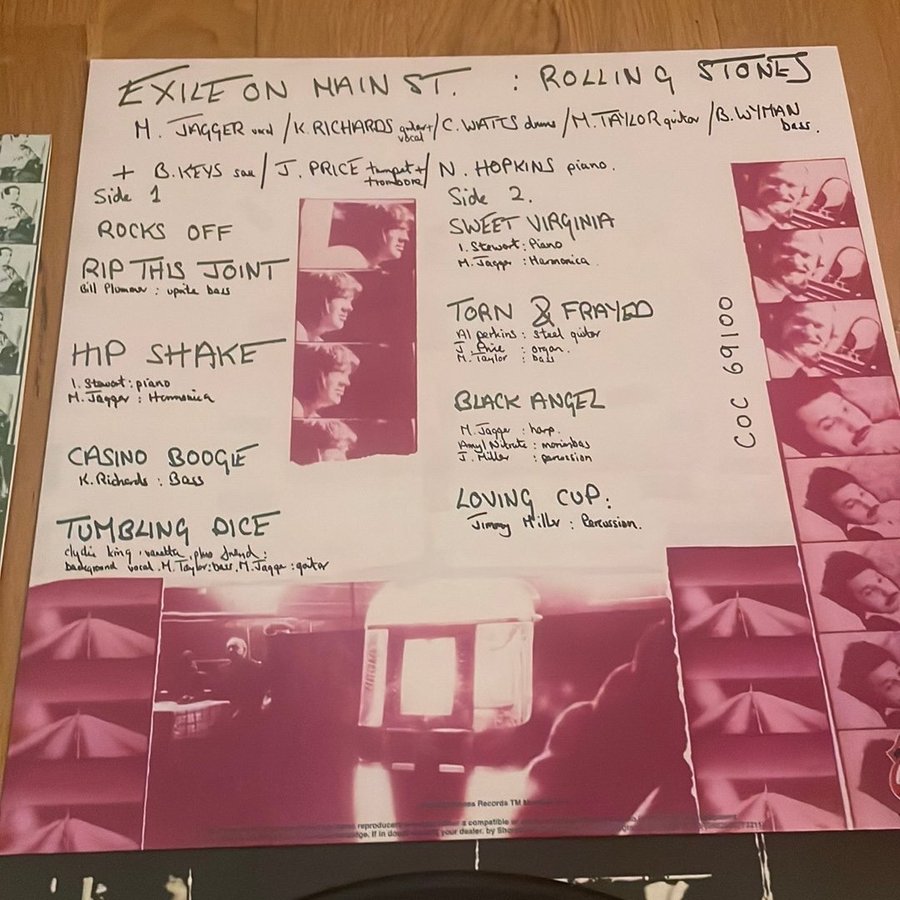 EXILE ON MAIN ST. : ROLLING STONES
M. JAGGER vocal / K. RICHARDS guitar + vocal / C. WATTS drums / M. TAYLOR guitar / B. WYMAN bass.
+ B. KEYS sax / J. PRICE trumpet + trombone / N. HOPKINS piano.
Side 1
ROCKS OFF
RIP THIS JOINT
Bill Plummer : uprite bass
HIP SHAKE
I. Stewart : piano
M. Jagger : Harmonica
CASINO BOOGIE
K. Richards : Bass
TUMBLING DICE
clydie king, vanetta, plus friend :
background vocal. M. Taylor : bass. M. Jagger : guitar
Side 2.
SWEET VIRGINIA
I. Stewart : Piano
M. Jagger : Harmonica.
TORN & FRAYED
Al perkins : steel guitar
J. Price : organ.
M. Taylor : bass
BLACK ANGEL
M. Jagger : harp.
Amyl Nitrate : marimbas
J. Miller : percussion
LOVING CUP :
Jimmy Miller : Percussion.
COC 69100
Records TM
reproduced a compatible or
If in doubt your dealer. by